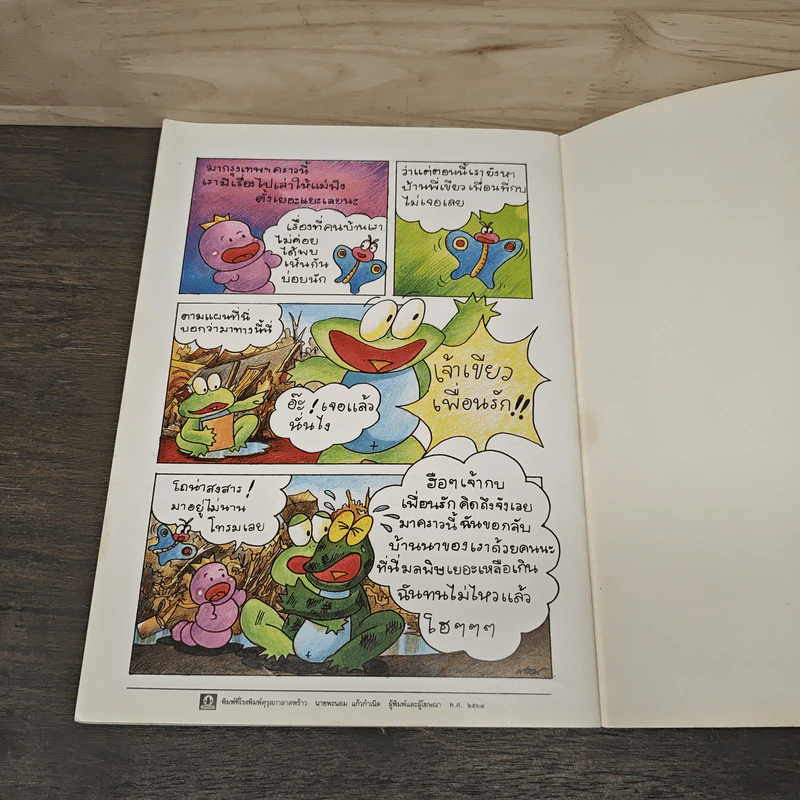 มากรุงเทพฯคราวนี้
เรามีเรื่องไปเล่าให้แม่ฟัง
ตั้งเยอะแยะเลยนะ
เรื่องที่คนบ้านเรา
ไม่ค่อย
ได้พบ
เห็นกัน
บ่อยนัก
ว่าแต่ตอนนี้เรายังหา
บ้านพี่เขียวเพื่อนพี่กบ
ไม่เจอเลย
ตามแผนที่นี่
บอกว่ามาทางนี้นี่
อ๊ะ! เจอแล้ว
นั่นไง
เจ้าเขียว
เพื่อนรัก!!
โถน่าสงสาร!
มาอยู่ไม่นาน
โทรมเลย
ฮือๆเจ้ากบ
เพื่อนรักคิดถึงจังเลย
มาคราวนี้ ฉันขอกลับ
บ้านนาของเราด้วยคนนะ
ที่นี่มลพิษเยอะเหลือเกิน
ฉันทนไม่ไหวแล้ว
โฮๆๆๆ
พิมพ์ที่โรงพิมพ์คุรุสภาลาดพร้าว นายพะนอม แก้วกำเนิด ผู้พิมพ์และผู้โฆษณา พ.ศ. ๒๕๓๗